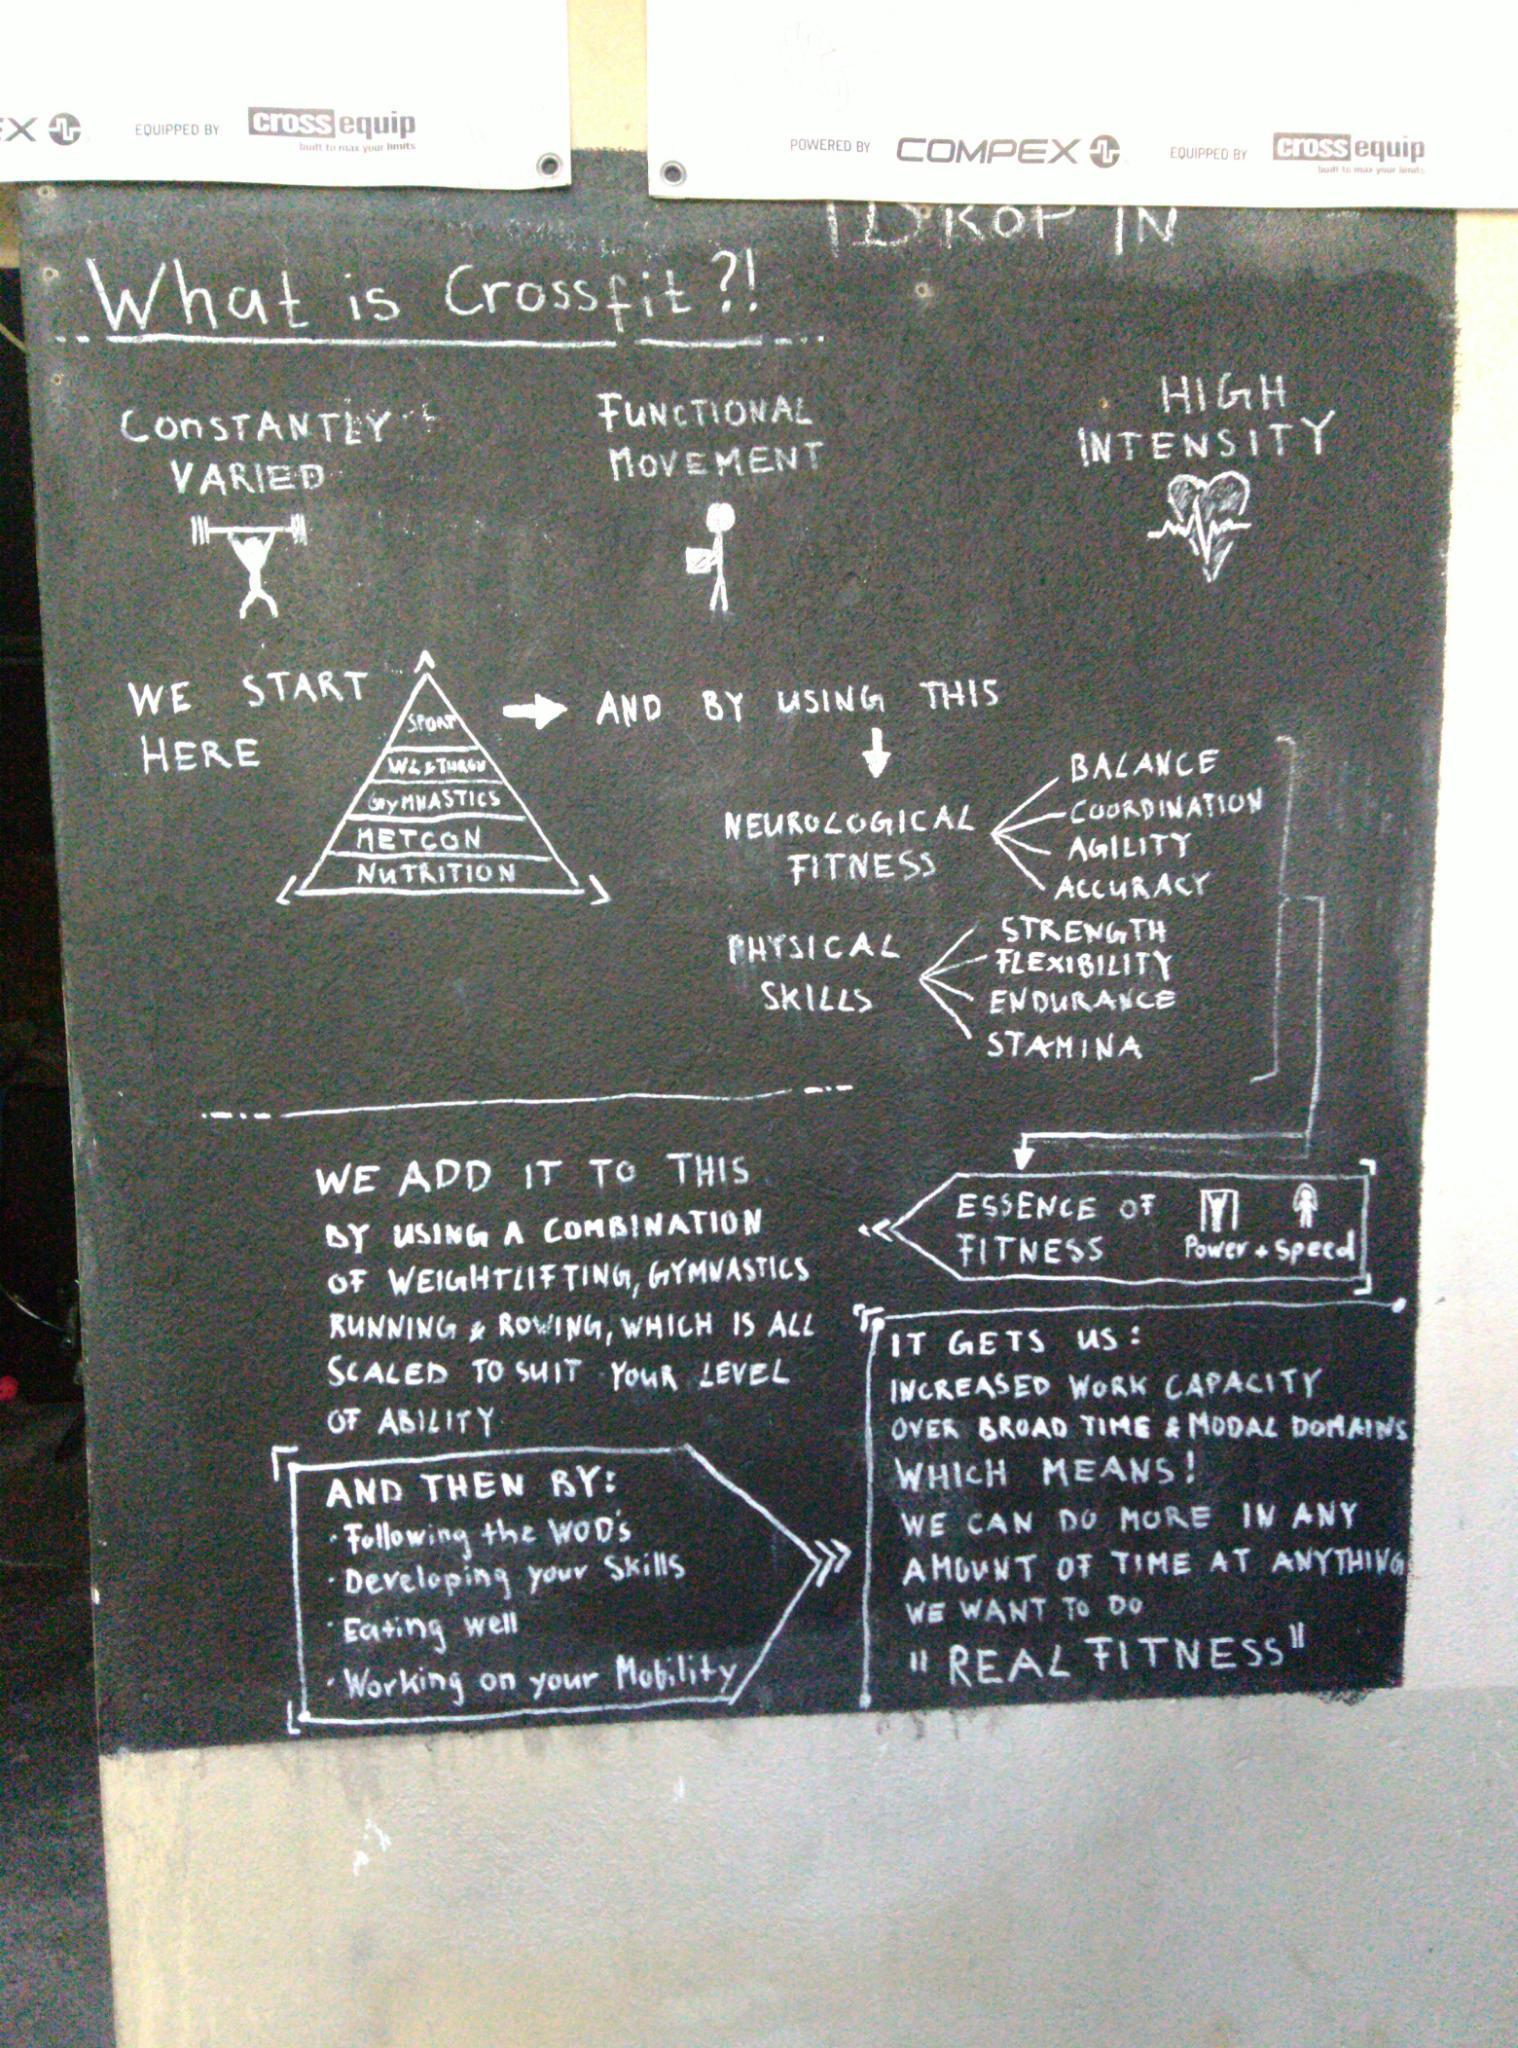 EX
EQUIPPED BY
cross equip
built to max your limits
POWERED BY
COMPEX
EQUIPPED BY
cross equip
built to max your limits
DROP IN
What is Crossfit?!
CONSTANTLY
VARIED
FUNCTIONAL
MOVEMENT
HIGH
INTENSITY
WE START
HERE
SPORT
WL & THROW
GYMNASTICS
METCON
NUTRITION
AND BY USING THIS
NEUROLOGICAL
FITNESS
BALANCE
COORDINATION
AGILITY
ACCURACY
PHYSICAL
SKILLS
STRENGTH
FLEXIBILITY
ENDURANCE
STAMINA
ESSENCE OF
FITNESS
Power + Speed
WE ADD IT TO THIS
BY USING A COMBINATION
OF WEIGHTLIFTING, GYMNASTICS
RUNNING & ROWING, WHICH IS ALL
SCALED TO SUIT YOUR LEVEL
OF ABILITY
AND THEN BY:
· Following the WOD's
· Developing your Skills
· Eating well
· Working on your Mobility
IT GETS US:
INCREASED WORK CAPACITY
OVER BROAD TIME & MODAL DOMAINS
WHICH MEANS!
WE CAN DO MORE IN ANY
AMOUNT OF TIME AT ANYTHING
WE WANT TO DO
"REAL FITNESS"